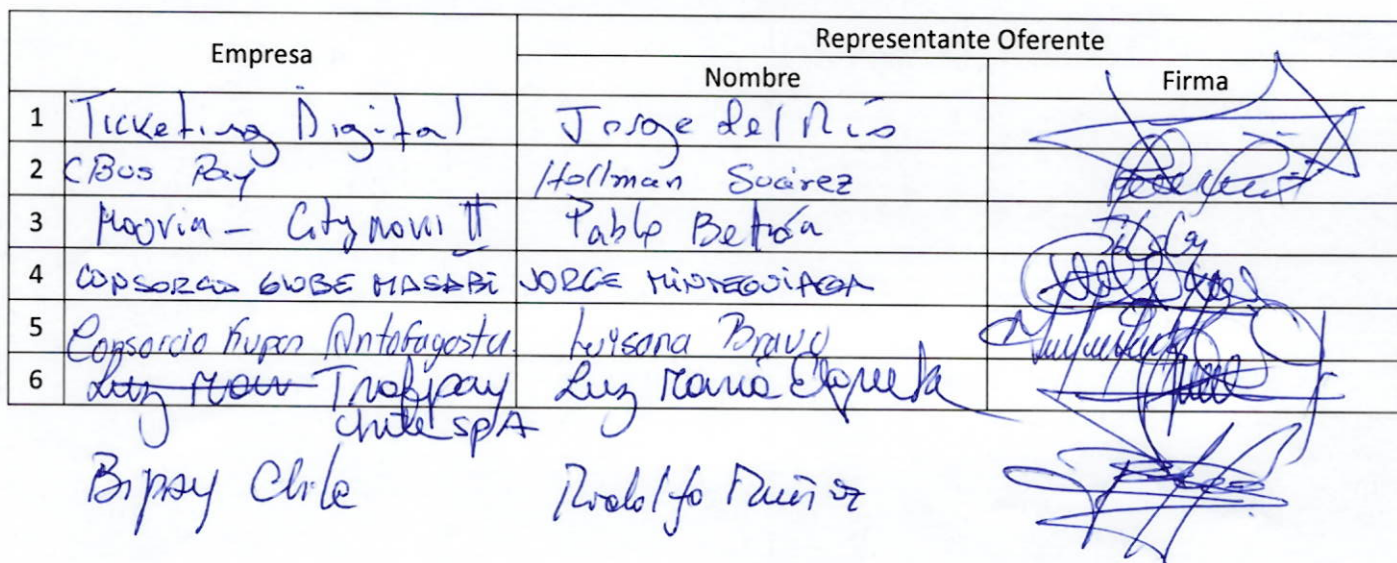 Empresa Representante Oferente
Nombre Firma
1 Ticketing Digital Jorge del Río
2 CBus Pay Hollman Suárez
3 Moovin - City Pablo
4 CONSORCIO GLOBE MASABI JORGE MINTEGUIAGA
5 Consorcio Kupos Antofagasta Luisana Bravo
6 Luz Mar Trafipay Luz María Elgueta
Chile SpA
Bipay Chile Rodolfo Muñoz